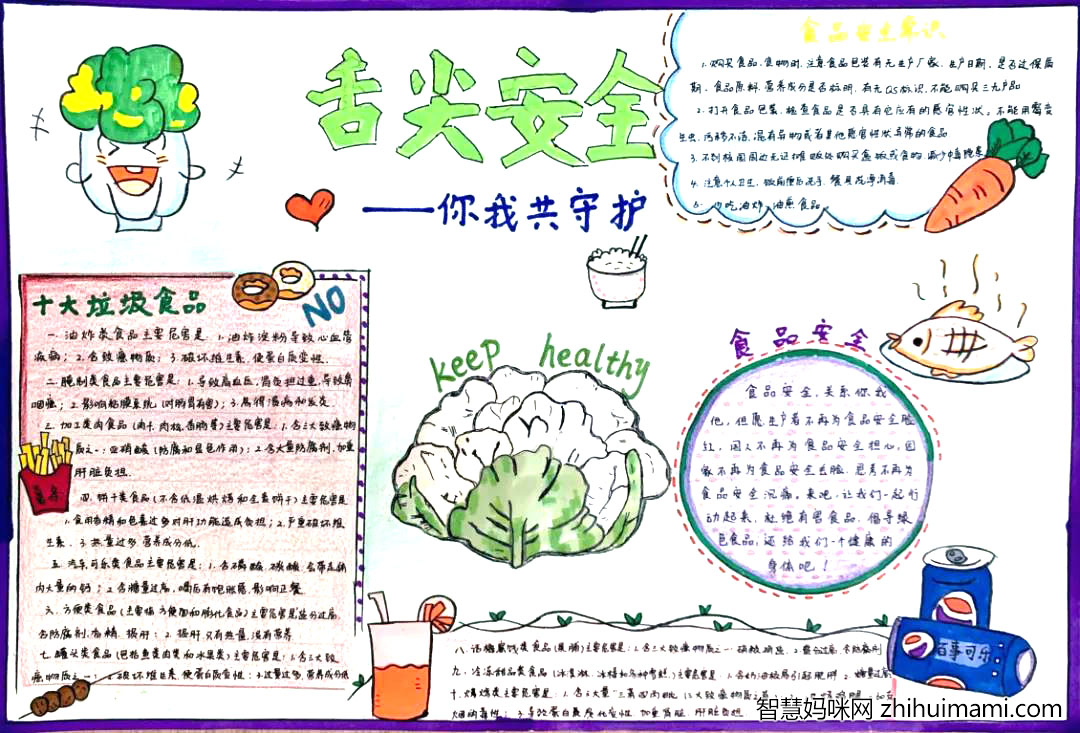 舌尖安全
——你我共守护
食品安全常识
1.购买食品、食物时,注意食品包装有无生产厂家、生产日期,是否过保质
期,食品原料、营养成分是否标明,有无QS标识,不能购买三无产品
2.打开食品包装,检查食品是否具有它应有的感官性状。不能用霉变
生虫、污秽不洁、混有异物或者其他感官性状异常的食品
3.不到校园周边无证摊贩处购买盒饭或食物,减少中毒隐患
4.注意个人卫生,饭前便后洗手,餐具洗净消毒.
5.少吃油炸、油熏食品。
十大垃圾食品
NO
一.油炸类食品主要危害是:1.油炸淀粉导致心血管
疾病;2.含致癌物质;3.破坏维生素,使蛋白质变性.
二.腌制类食品主要危害是:1.导致高血压,肾负担过重,导致鼻
咽癌;2.影响粘膜系统(对肠胃有害);3.易得溃疡和发炎.
三.加工类肉食品(肉干、肉松、香肠等)主要危害是:1.含三大致癌物
质之一:亚硝酸盐(防腐和显色作用);2.含大量防腐剂,加重
肝脏负担.
四.饼干类食品(不含低温烘烤和全麦饼干)主要危害是
1.食用香精和色素过多对肝功能造成负担;2.严重破坏维
生素.3.热量过多、营养成分低.
五.汽车可乐类食品主要危害是:1.含磷酸、碳酸,会带走体
内大量的钙;2.含糖量过高,喝后有饱胀感,影响正餐
六.方便类食品(主要指方便面和膨化食品)主要危害是盐分过高,
含防腐剂、香精.损肝;2.损肝.只有热量,没有营养
七.罐头类食品(包括鱼类肉类和水果类)主要危害是:1.含三大致
癌物质之一;2.破坏维生素,使蛋白质变性;3.过量过多,营养成分低
薯条
keep healthy
食品安全
食品安全,关系你我
他,但愿生产者不再为食品安全脸
红,国人不再为食品安全担心,国
家不再为食品安全丢脸.思考不再为
食品安全沉痛。来吧,让我们一起行
动起来,杜绝有害食品,倡导绿
色食品,还给我们一个健康的
身体吧!
百事可乐
八.话梅蜜饯类食品(果脯)主要危害是:1.含三大致癌物质之一:亚硝酸盐.2.盐分过高,含防腐剂
九.冷冻甜品类食品(冰淇淋、冰棒和各种雪糕).主要危害是:1.含奶油极易引起肥胖 2.糖量过高
十.烧烤类主要危害是:1.含大量"三苯四丙吡"(三大致癌物质之首)
烟的毒性;3.导致蛋白质炭化变性,加重肾脏、肝脏负担
智慧妈咪网 zhihuimami.com